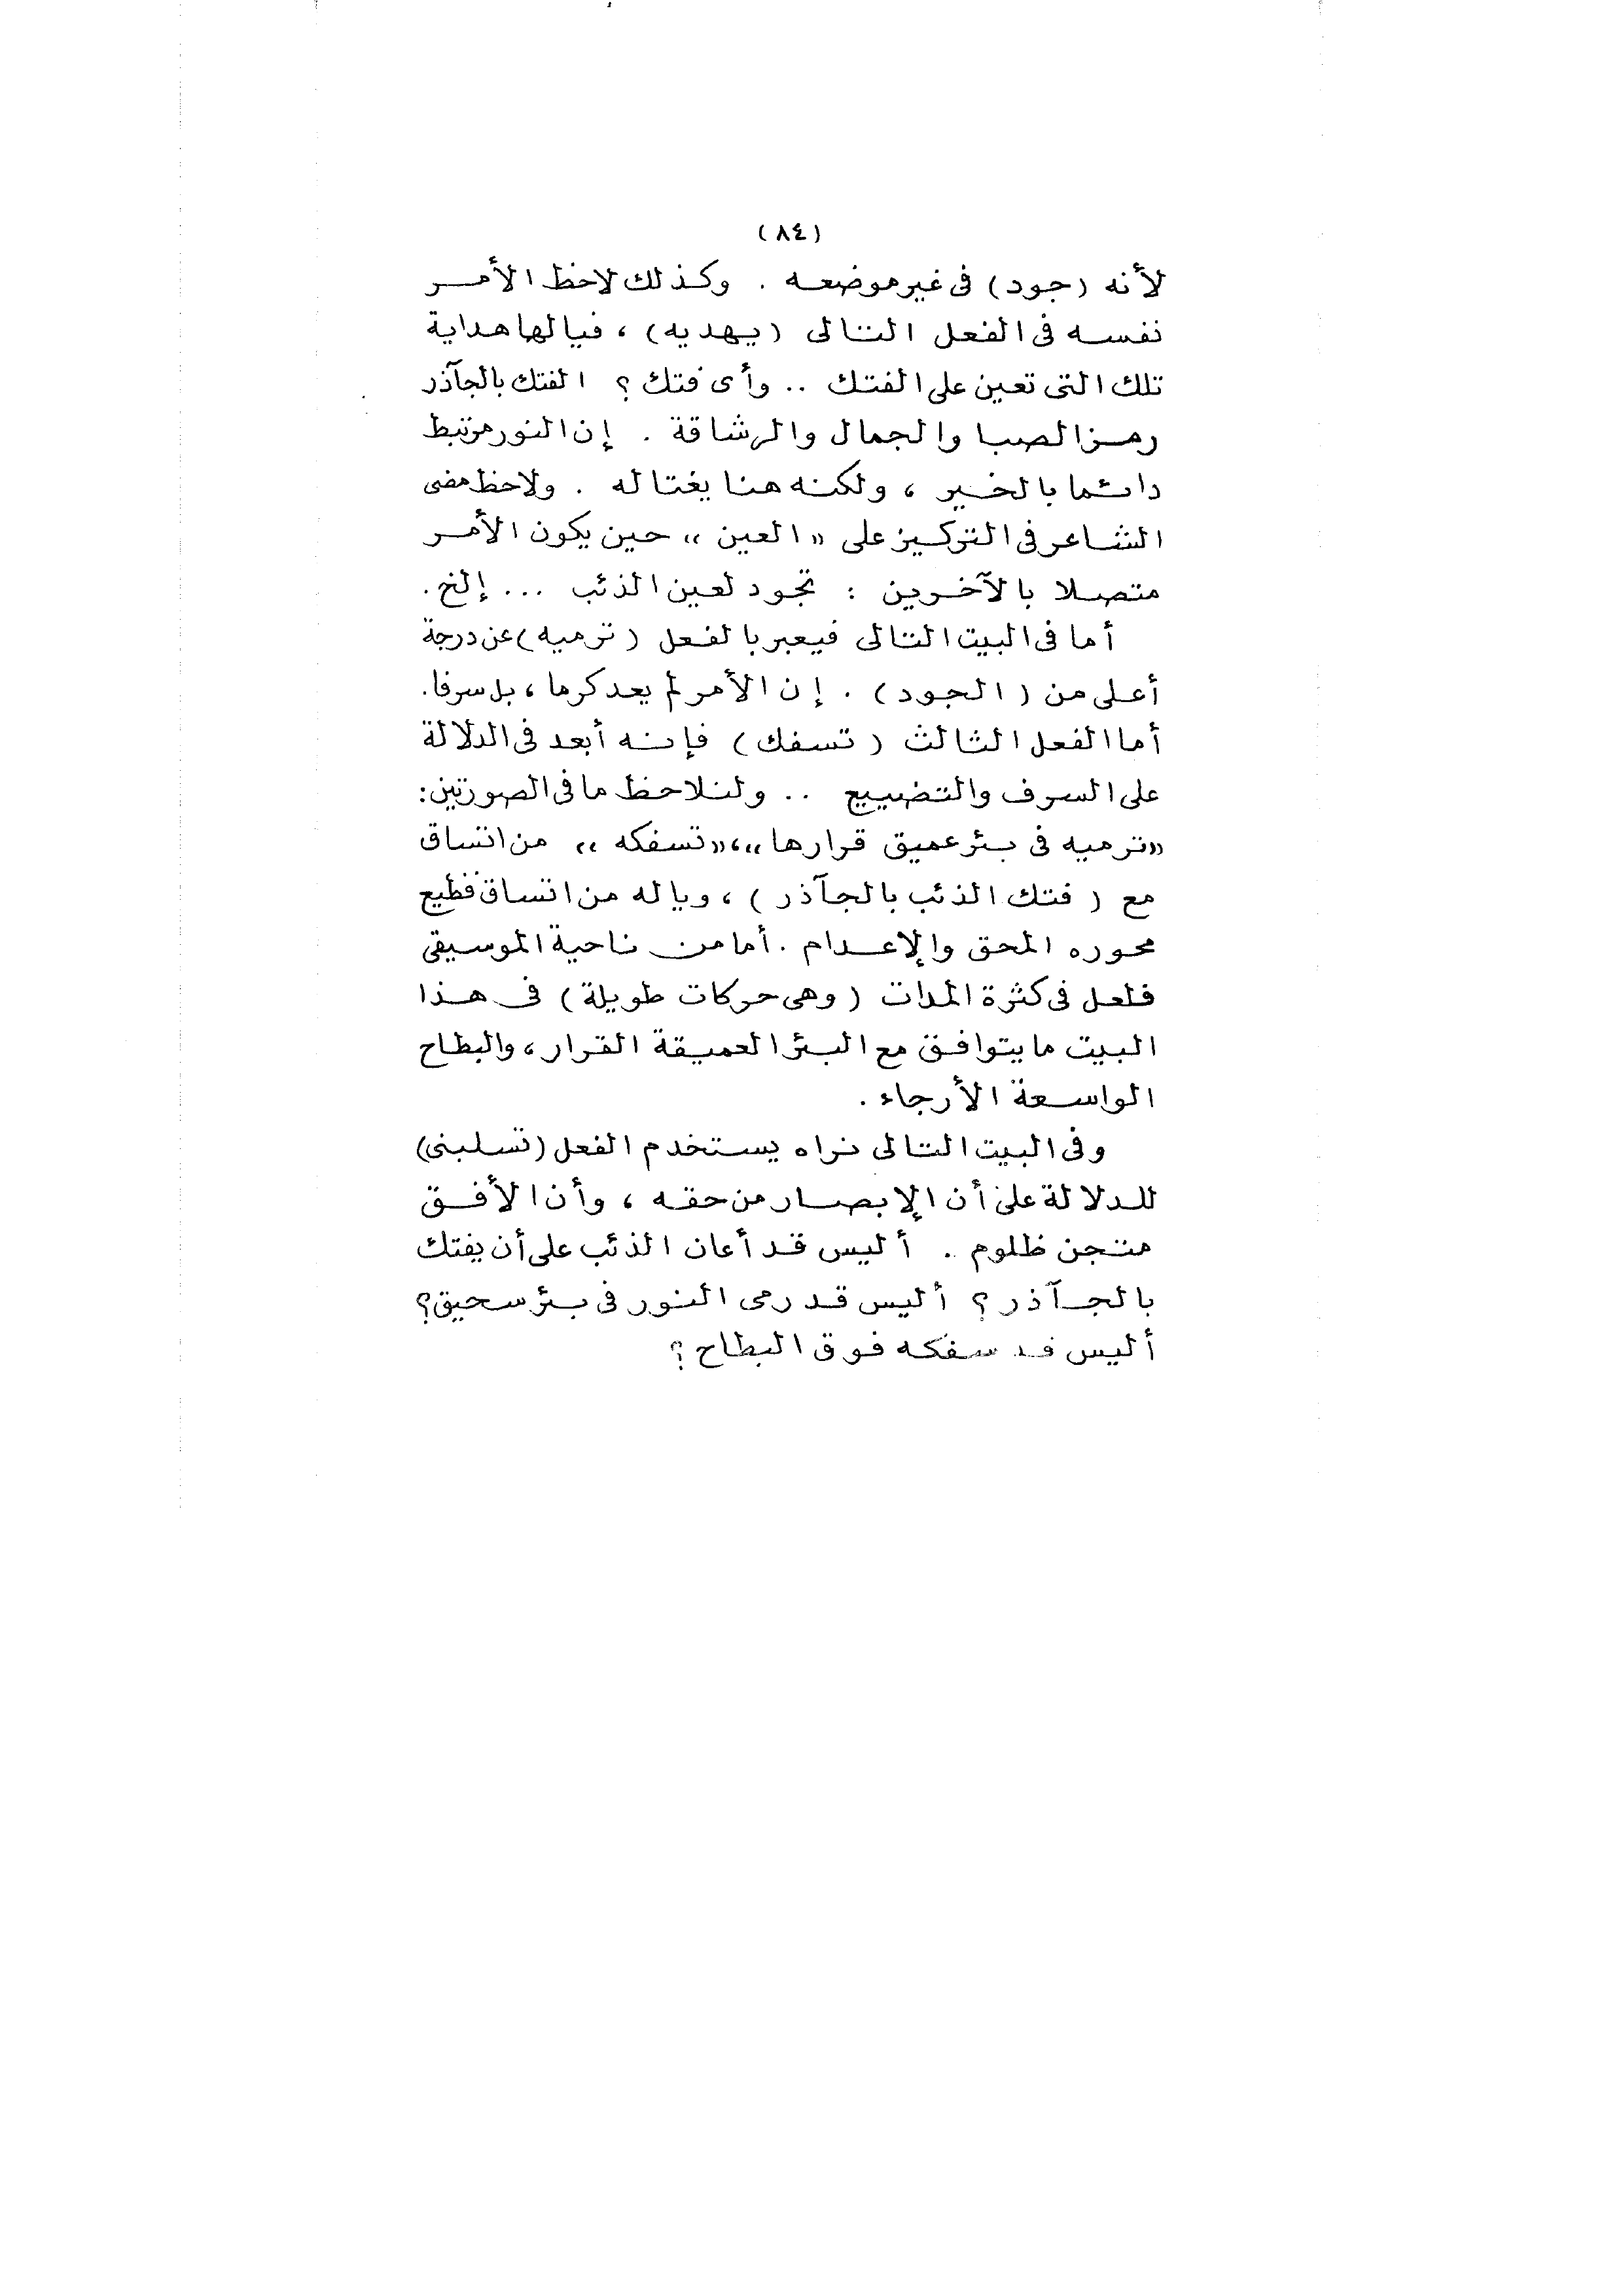 (٨٤)
لأنه (جود) فى غير موضعه . وكذلك لاحظ الأمر
نفسه فى الفعل التالى (يهديه) ، فيالها هداية
تلك التى تعين على الفتك .. وأى فتك ؟ الفتك بالجآذر
رمز الصبا والجمال والرشاقة . إن النور مرتبط
دائما بالخير ، ولكنه هنا يغتاله . ولاحظ مضى
الشاعر فى التركيز على «العين» حين يكون الأمر
متصلا بالآخرين : تجود لعين الذئب ... إلخ .
أما فى البيت التالى فيعبر بالفعل (ترميه) عن درجة
أعلى من (الجود) . إن الأمر لم يعد كرما ، بل سرفا .
أما الفعل الثالث (تسفك) فإنه أبعد فى الدلالة
على السرف والتضييع .. ولنلاحظ ما فى الصورتين :
«ترميه فى بئر عميق قرارها» ، «تسفكه» من اتساق
مع (فتك الذئب بالجآذر) ، وياله من اتساق فظيع
محوره المحق والإعدام . أما من ناحية الموسيقى
فلعل فى كثرة المدات (وهى حركات طويلة) فى هذا
البيت ما يتوافق مع البئر العميقة القرار ، والبطاح
الواسعة الأرجاء .
وفى البيت التالى نراه يستخدم الفعل (تسلبنى)
للدلالة على أن الإبصار من حقه ، وأن الأفق
متجن ظلوم . أليس قد أعان الذئب على أن يفتك
بالجآذر ؟ أليس قد رمى النور فى بئر سحيق ؟
أليس قد سفكه فوق البطاح ؟